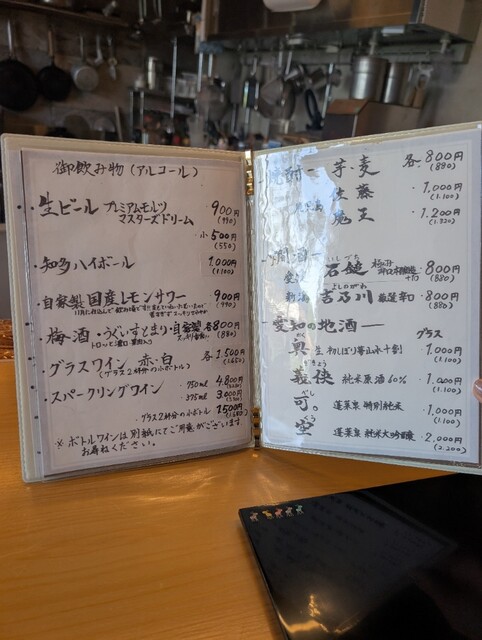 御飲み物 (アルコール)
・生ビール プレミアムモルツ 900円
マスターズドリーム (990)
小 500円
(550)
・知多ハイボール 1,000円
(1.100)
・自家製 国産レモンサワー 900円
(990)
・梅酒・うぐいすとまり・自家製 各 800円
(880)
・グラスワイン 赤・白 各 1.500円
(グラス2杯分の小ボトル) (1.650)
・スパークリングワイン 750ml 4.800円
375ml 3.000円
グラス2杯分の小ボトル 1500円
※ボトルワインは別紙にてご用意がございます
お尋ねください。
焼酎ー 芋 麦 各 800円
(880)
佐藤 1,000円
(1.100)
魔王 1.200円
(1.320)
燗酒ー いしづち
石鎚 800円
(880)
よしのがわ
新潟 吉乃川 厳選辛口 800円
(880)
愛知の地酒ー グラス
奥 生初しぼり 1.000円
(1.100)
義侠 純米原酒 60% 1.000円
(1.100)
可。 蓬莱泉 特別純米 1.000円
(1.100)
くう
空 蓬莱泉 純米大吟醸 2.000円
(2.200)